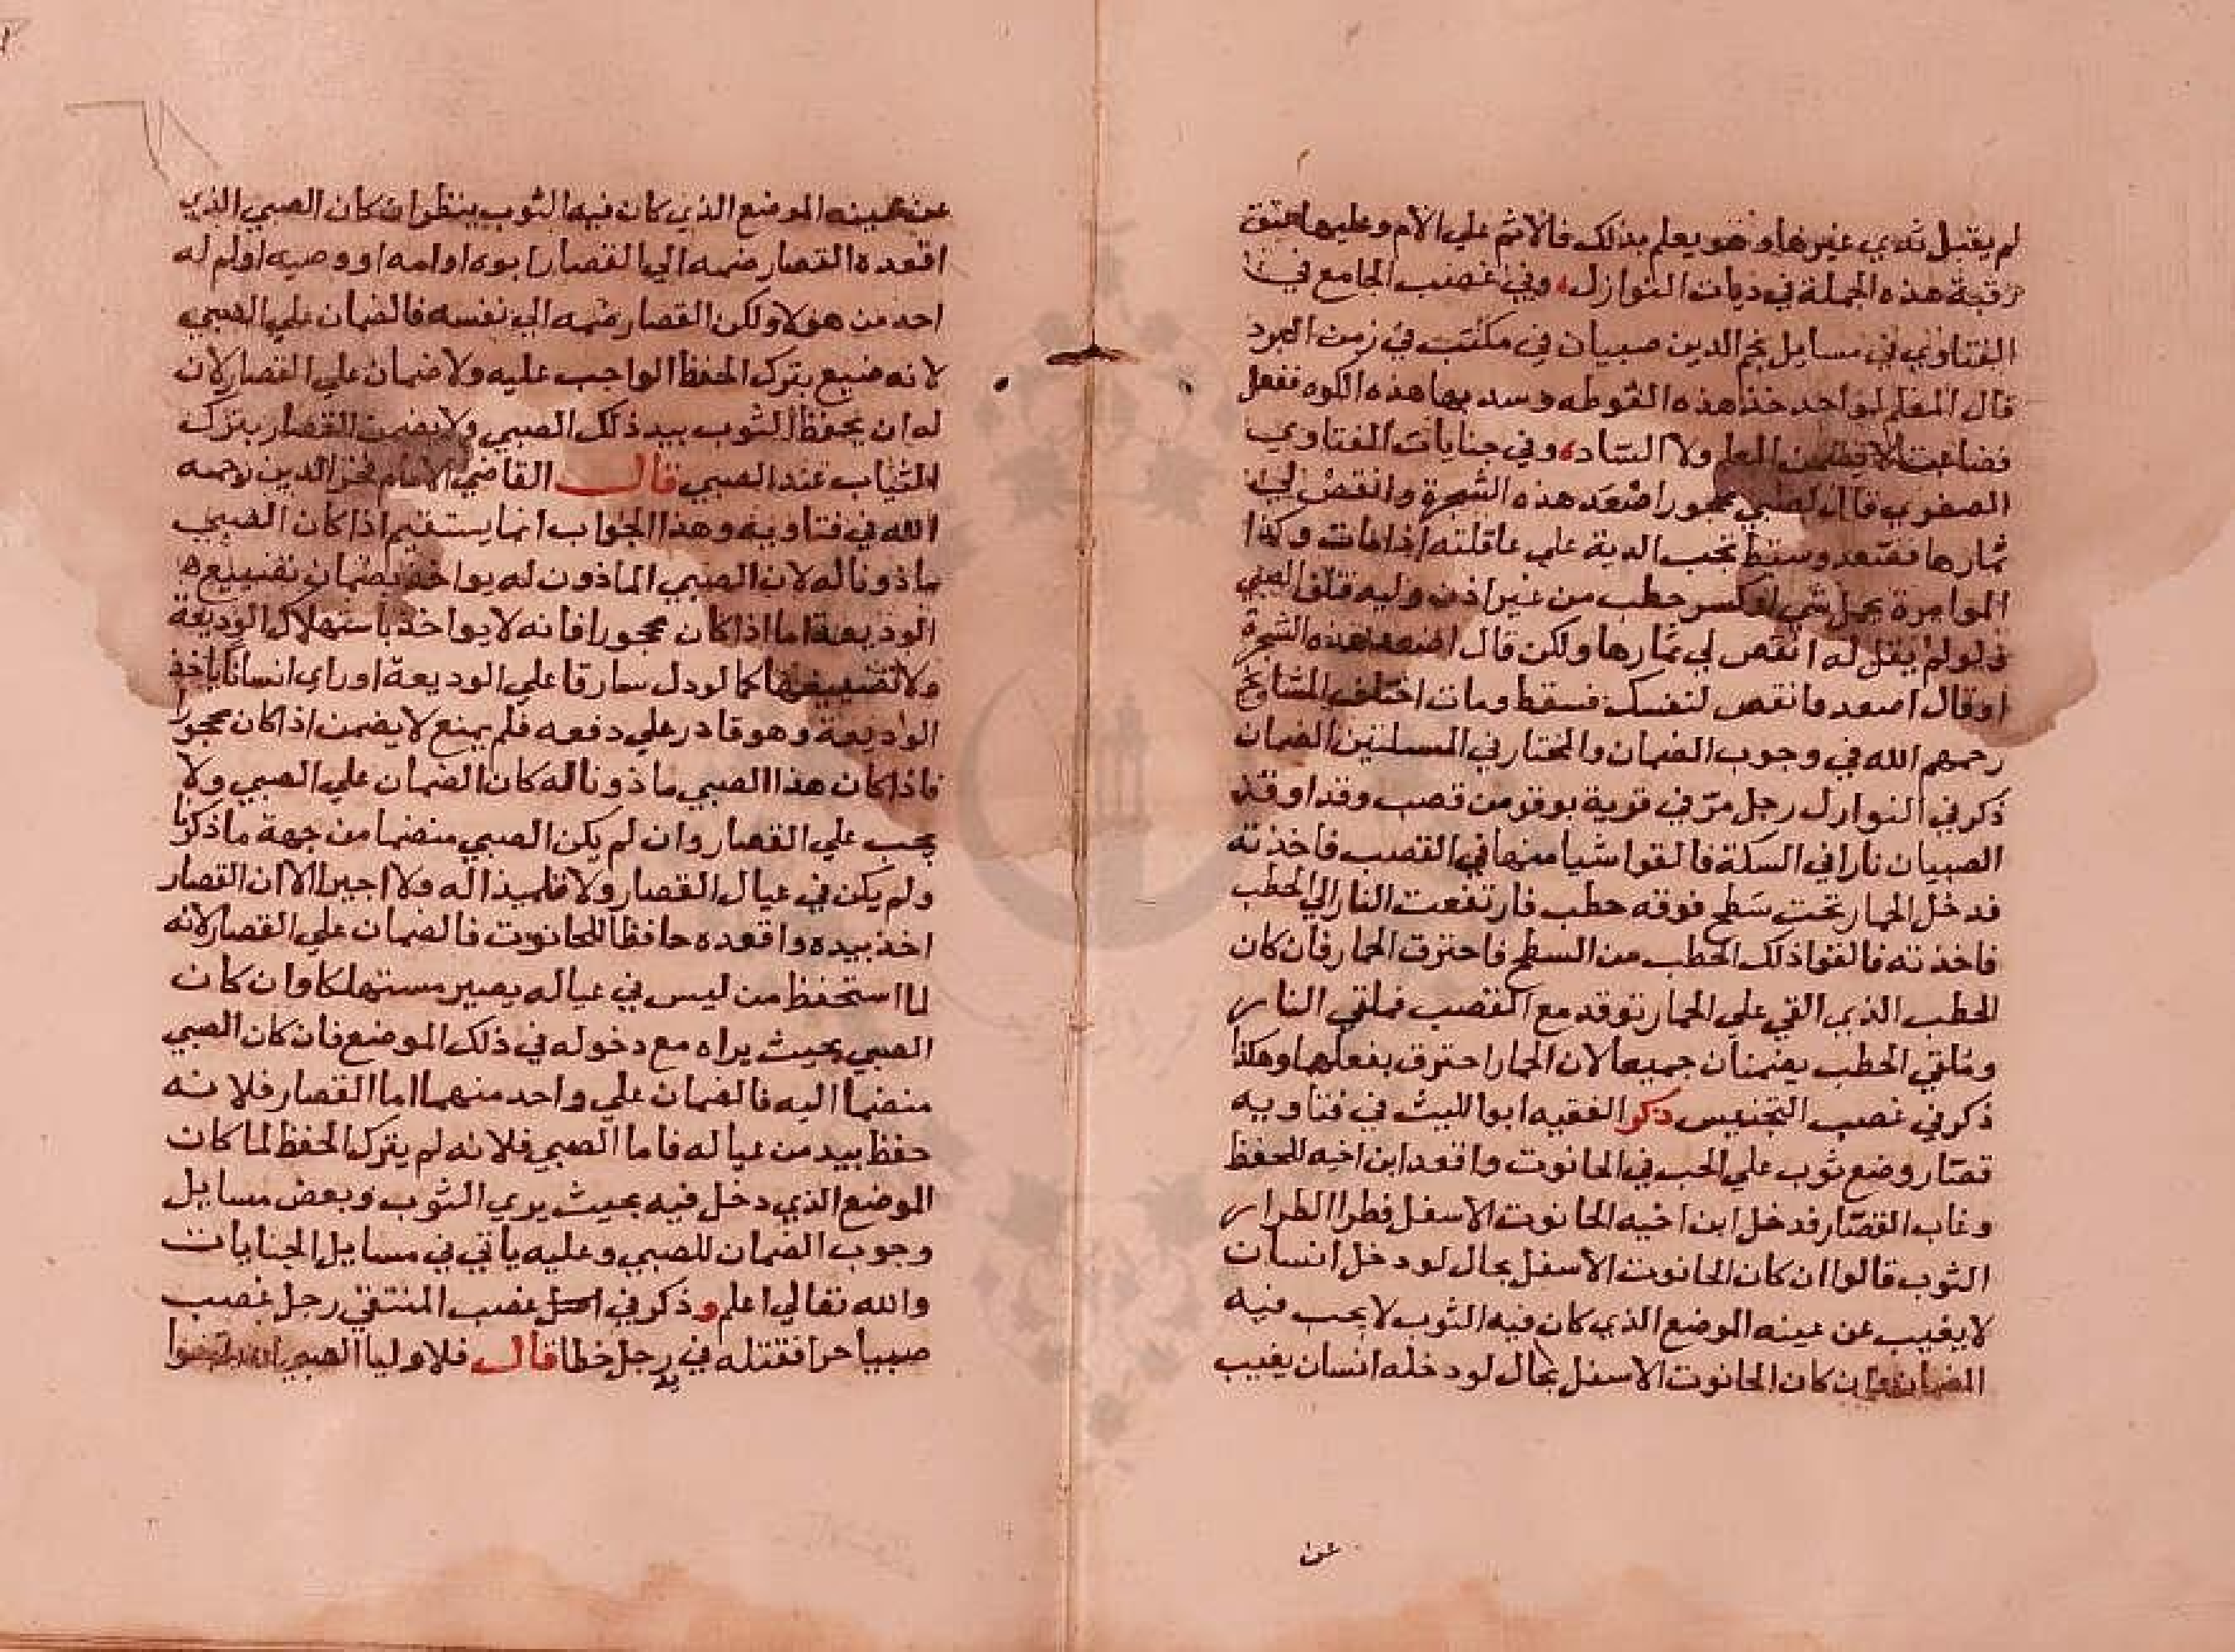 لم يقبل ثدي غيرها وهو يعلم بذلك فالاثم علي الام وعليها عتق
رقبة هذه الجملة في ديات النوازل، وفي غصب الجامع في
الفتاوي في مسايل نجم الدين صبيان في مكتب في زمن البرد
قال المعلم لواحد خذ هذه الفوطه وسد بها هذه الكوه ففعل
فضاعت لا يضمن المعلم ولا الساد، وفي جنايات الفتاوي
الصغري قال لصبي محجور اصعد هذه الشجرة وانقض لي
ثمارها فصعد وسقط تجب الدية علي عاقلته اذا مات وكذا
لو امره بحمل شي او كسر حطب من غير اذن وليه فتلف الصبي
ولو لم يقل له انقض لي ثمارها ولكن قال اصعد هذه الشجرة
او قال اصعد وانقض لنفسك فسقط ومات اختلف المشايخ
رحمهم الله في وجوب الضمان والمختار في المسلتين الضمان
ذكر في النوازل رجل مر في قرية بوقر من قصب وقد اوقد
الصبيان نارا في السكة فالقوا شيا منها في القصب فاخذته
فدخل الحمار تحت سطح فوقه حطب فارتفعت النار الي الحطب
فاخذته فالقوا ذلك الحطب من السطح فاحترق الحمار فان كان
الحطب الذي القي علي الحمار توقد مع القصب فملقي النار
وملقي الحطب يضمنان جميعا لان الحمار احترق بفعلهما وهكذا
ذكر في غصب التجنيس ذكر الفقيه ابو الليث في فتاويه
قصار وضع ثوب علي الحب في الحانوت واقعد ابن اخيه للحفظ
وغاب القصار فدخل ابن اخيه الحانوت الاسفل فطرا الطرار
الثوب قالوا ان كان الحانوت الاسفل بحال لو دخل انسان
لا يغيب عن عينه الموضع الذي كان فيه الثوب لا يجب فيه
الضمان وان كان الحانوت الاسفل بحال لو دخله انسان يغيب
عن
عن عينه الموضع الذي كان فيه الثوب ينظر ان كان الصبي الذي
اقعده القصار ضمه الي القصار ابوه او امه او وصيه او لم له
احد من هولا ولكن القصار ضمه الي نفسه فالضمان علي الصبي
لانه ضيع بترك الحفظ الواجب عليه ولا ضمان علي القصار لان
له ان يحفظ الثوب بيد ذلك الصبي ولا يضمن القصار بترك
الثياب عند الصبي قال القاضي الامام فخر الدين رحمه
الله في فتاويه وهذا الجواب انما يستقيم اذا كان الصبي
ماذونا له لان الصبي الماذون له يواخذ بضمان تضييع
الوديعة اما اذا كان محجورا فانه لا يواخذ باستهلاك الوديعة
ولا تضييعها كما لو دل سارقا علي الوديعة او راي انسانا ياخذ
الوديعة وهو قادر علي دفعه فلم يمنع لا يضمن اذا كان محجورا
فاذا كان هذا الصبي ماذونا له كان الضمان علي الصبي ولا
يجب علي القصار وان لم يكن الصبي منضما من جهة ما ذكرنا
ولم يكن في عيال القصار ولا تلميذا له ولا اجيرا الا ان القصار
اخذ بيده واقعده حافظا للحانوت فالضمان علي القصار لانه
لما استحفظ من ليس في عياله يصير مستهلكا وان كان
الصبي بحيث يراه مع دخوله في ذلك الموضع فان كان الصبي
منضما اليه فالضمان علي واحد منهما اما القصار فلانه
حفظ بيد من عياله فاما الصبي فلانه لم يترك الحفظ لما كان
الموضع الذي دخل فيه بحيث يري الثوب وبعض مسايل
وجوب الضمان للصبي وعليه ياتي في مسايل الجنايات
والله تعالي اعلم وذكر في غصب المنتقي رجل غصب
صبيا حرا فقتله في يد رجل خطا قال فلاوليا الصبي